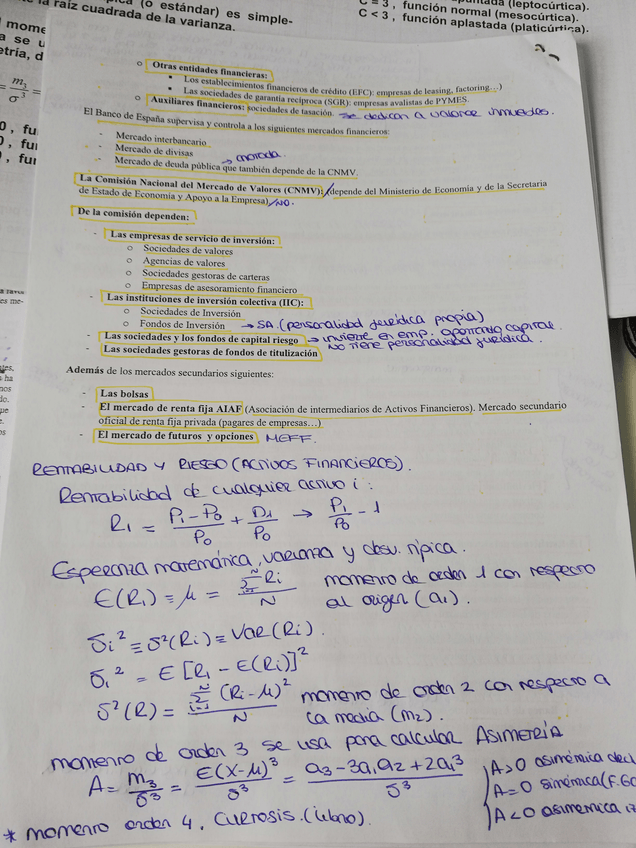 (o estándar) es simple-
la raíz cuadrada de la varianza.
(leptocúrtica).
C = 3 , función normal (mesocúrtica).
C < 3 , función aplastada (platicúrtica).
o Otras entidades financieras:
▪ Los establecimientos financieros de crédito (EFC): empresas de leasing, factoring…)
▪ Las sociedades de garantía recíproca (SGR): empresas avalistas de PYMES.
o Auxiliares financieros: sociedades de tasación. se dedican a valorar inmuebles.
El Banco de España supervisa y controla a los siguientes mercados financieros:
- Mercado interbancario
- Mercado de divisas
- Mercado de deuda pública que también depende de la CNMV.
La Comisión Nacional del Mercado de Valores (CNMV): (depende del Ministerio de Economía y de la Secretaria
de Estado de Economía y Apoyo a la Empresa) NO.
De la comisión dependen:
- Las empresas de servicio de inversión:
o Sociedades de valores
o Agencias de valores
o Sociedades gestoras de carteras
o Empresas de asesoramiento financiero
- Las instituciones de inversión colectiva (IIC):
o Sociedades de Inversión
o Fondos de Inversión → SA. (personalidad jurídica propia)
- Las sociedades y los fondos de capital riesgo → invierte en emp. aportando capital.
No tiene personalidad jurídica.
- Las sociedades gestoras de fondos de titulización
Además de los mercados secundarios siguientes:
- Las bolsas
- El mercado de renta fija AIAF (Asociación de intermediarios de Activos Financieros). Mercado secundario
oficial de renta fija privada (pagares de empresas…)
- El mercado de futuros y opciones MEFF.
RENTABILIDAD Y RIESGO (ACTIVOS FINANCIEROS).
Rentabilidad de cualquier activo i:
R₁ = (P₁ - P₀)/P₀ + D₁/P₀ → P₁/P₀ - 1
Esperanza matemática, varianza y desv. típica.
E(R₁) = μ = Σᴺᵢ₌₁ Ri / N momento de orden 1 con respecto
al origen (a₁).
σi² ≡ σ²(Ri) ≡ Var(Ri).
σi² = E [R₁ - E(Ri)]²
σ²(R) = Σᴺᵢ₌₁ (Ri - μ)² / N momento de orden 2 con respecto a
la media (m₂).
momento de orden 3 se usa para calcular ASIMETRÍA
A = m₃/σ³ = E(X-μ)³/σ³ = (a₃ - 3a₁a₂ + 2a₁³)/σ³
A > 0 asimétrica
A = 0 simétrica
A < 0 asimétrica
* momento orden 4, CURTOSIS.